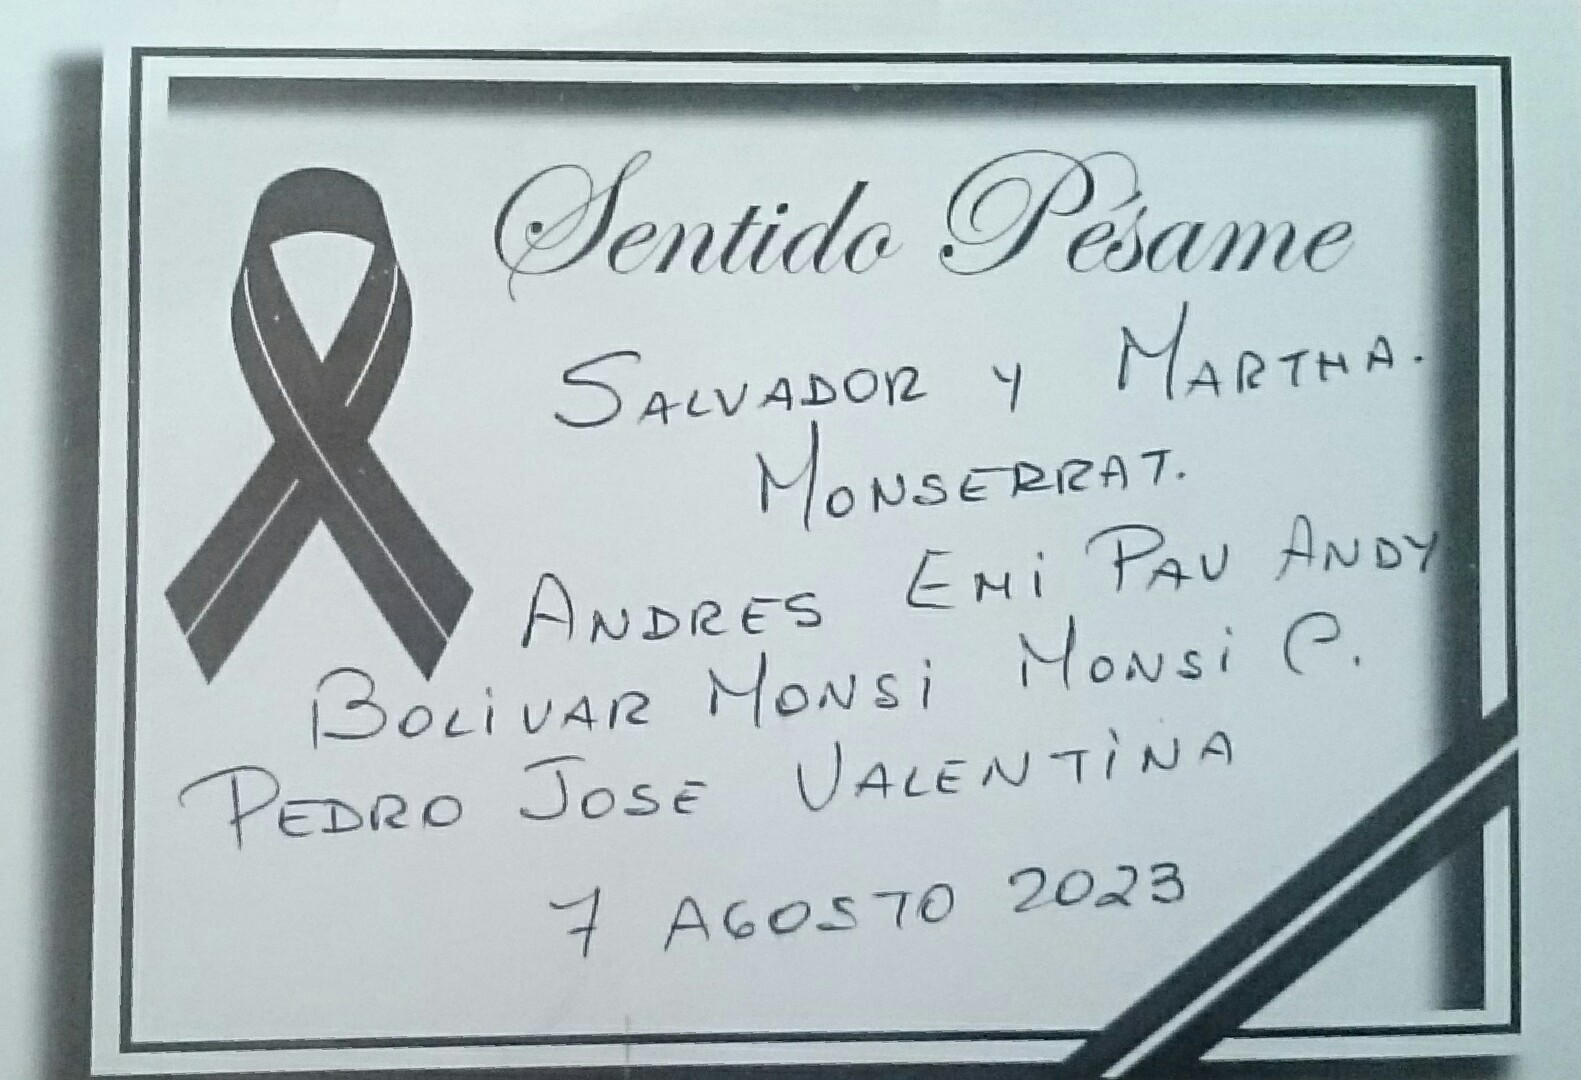 Sentido Pésame
SALVADOR Y MARTHA.
MONSERRAT.
ANDRES EMi PAU ANDY
BOLiVAR MONSi MONSi C.
PEDRO JOSE VALENTiNA
7 AGOSTO 2023